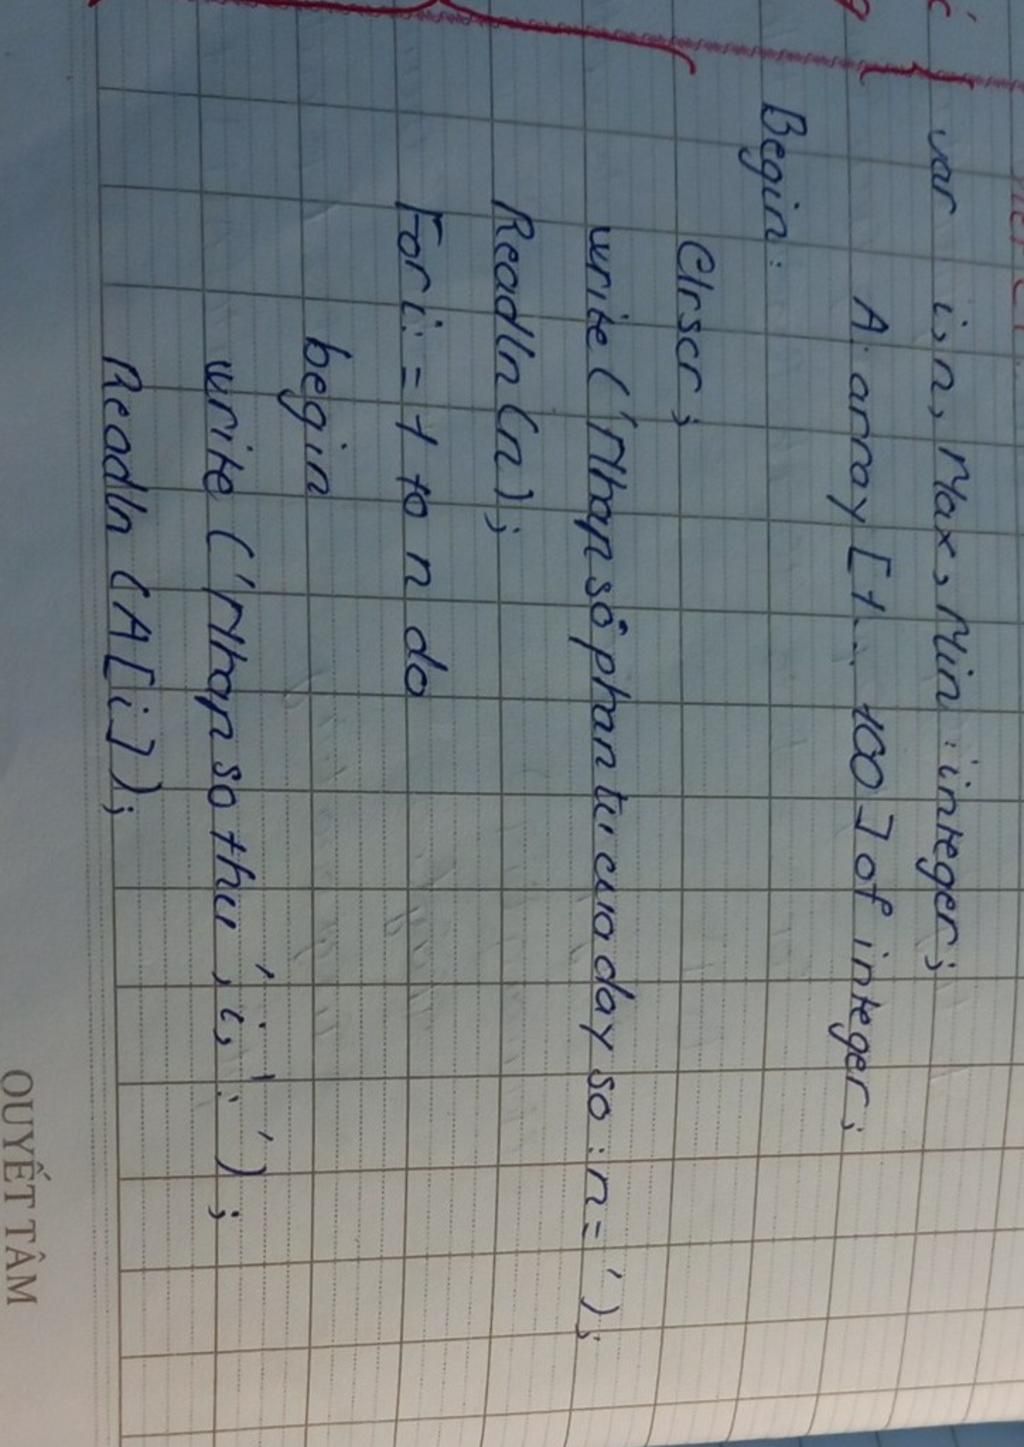 var i, n, Max, Min : integer;
A: array [1.. 100] of integer;
Begin:
Clrscr;
write ('Nhap số phan tu cua day so : n = ');
Readln (n);
For i: = 1 to n do
begin
write ('Nhap so thu ', i, ' : ');
Readln (A[i]);
QUYẾT TÂM